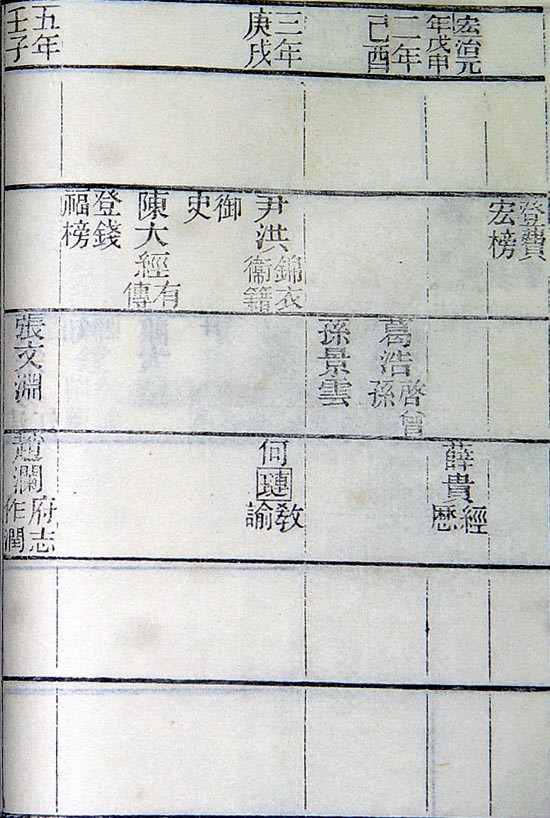 宏治元
年戊申
二年
己酉
三年
庚戌
五年
壬子
登費
宏榜
尹洪錦衣
衞籍
御
史
陳大經有
傳
登錢
福榜
葛浩啓曾
孫
孫景雲
張文淵
薛貴經
厯
何璉教
諭
趙瀾府志
作潤